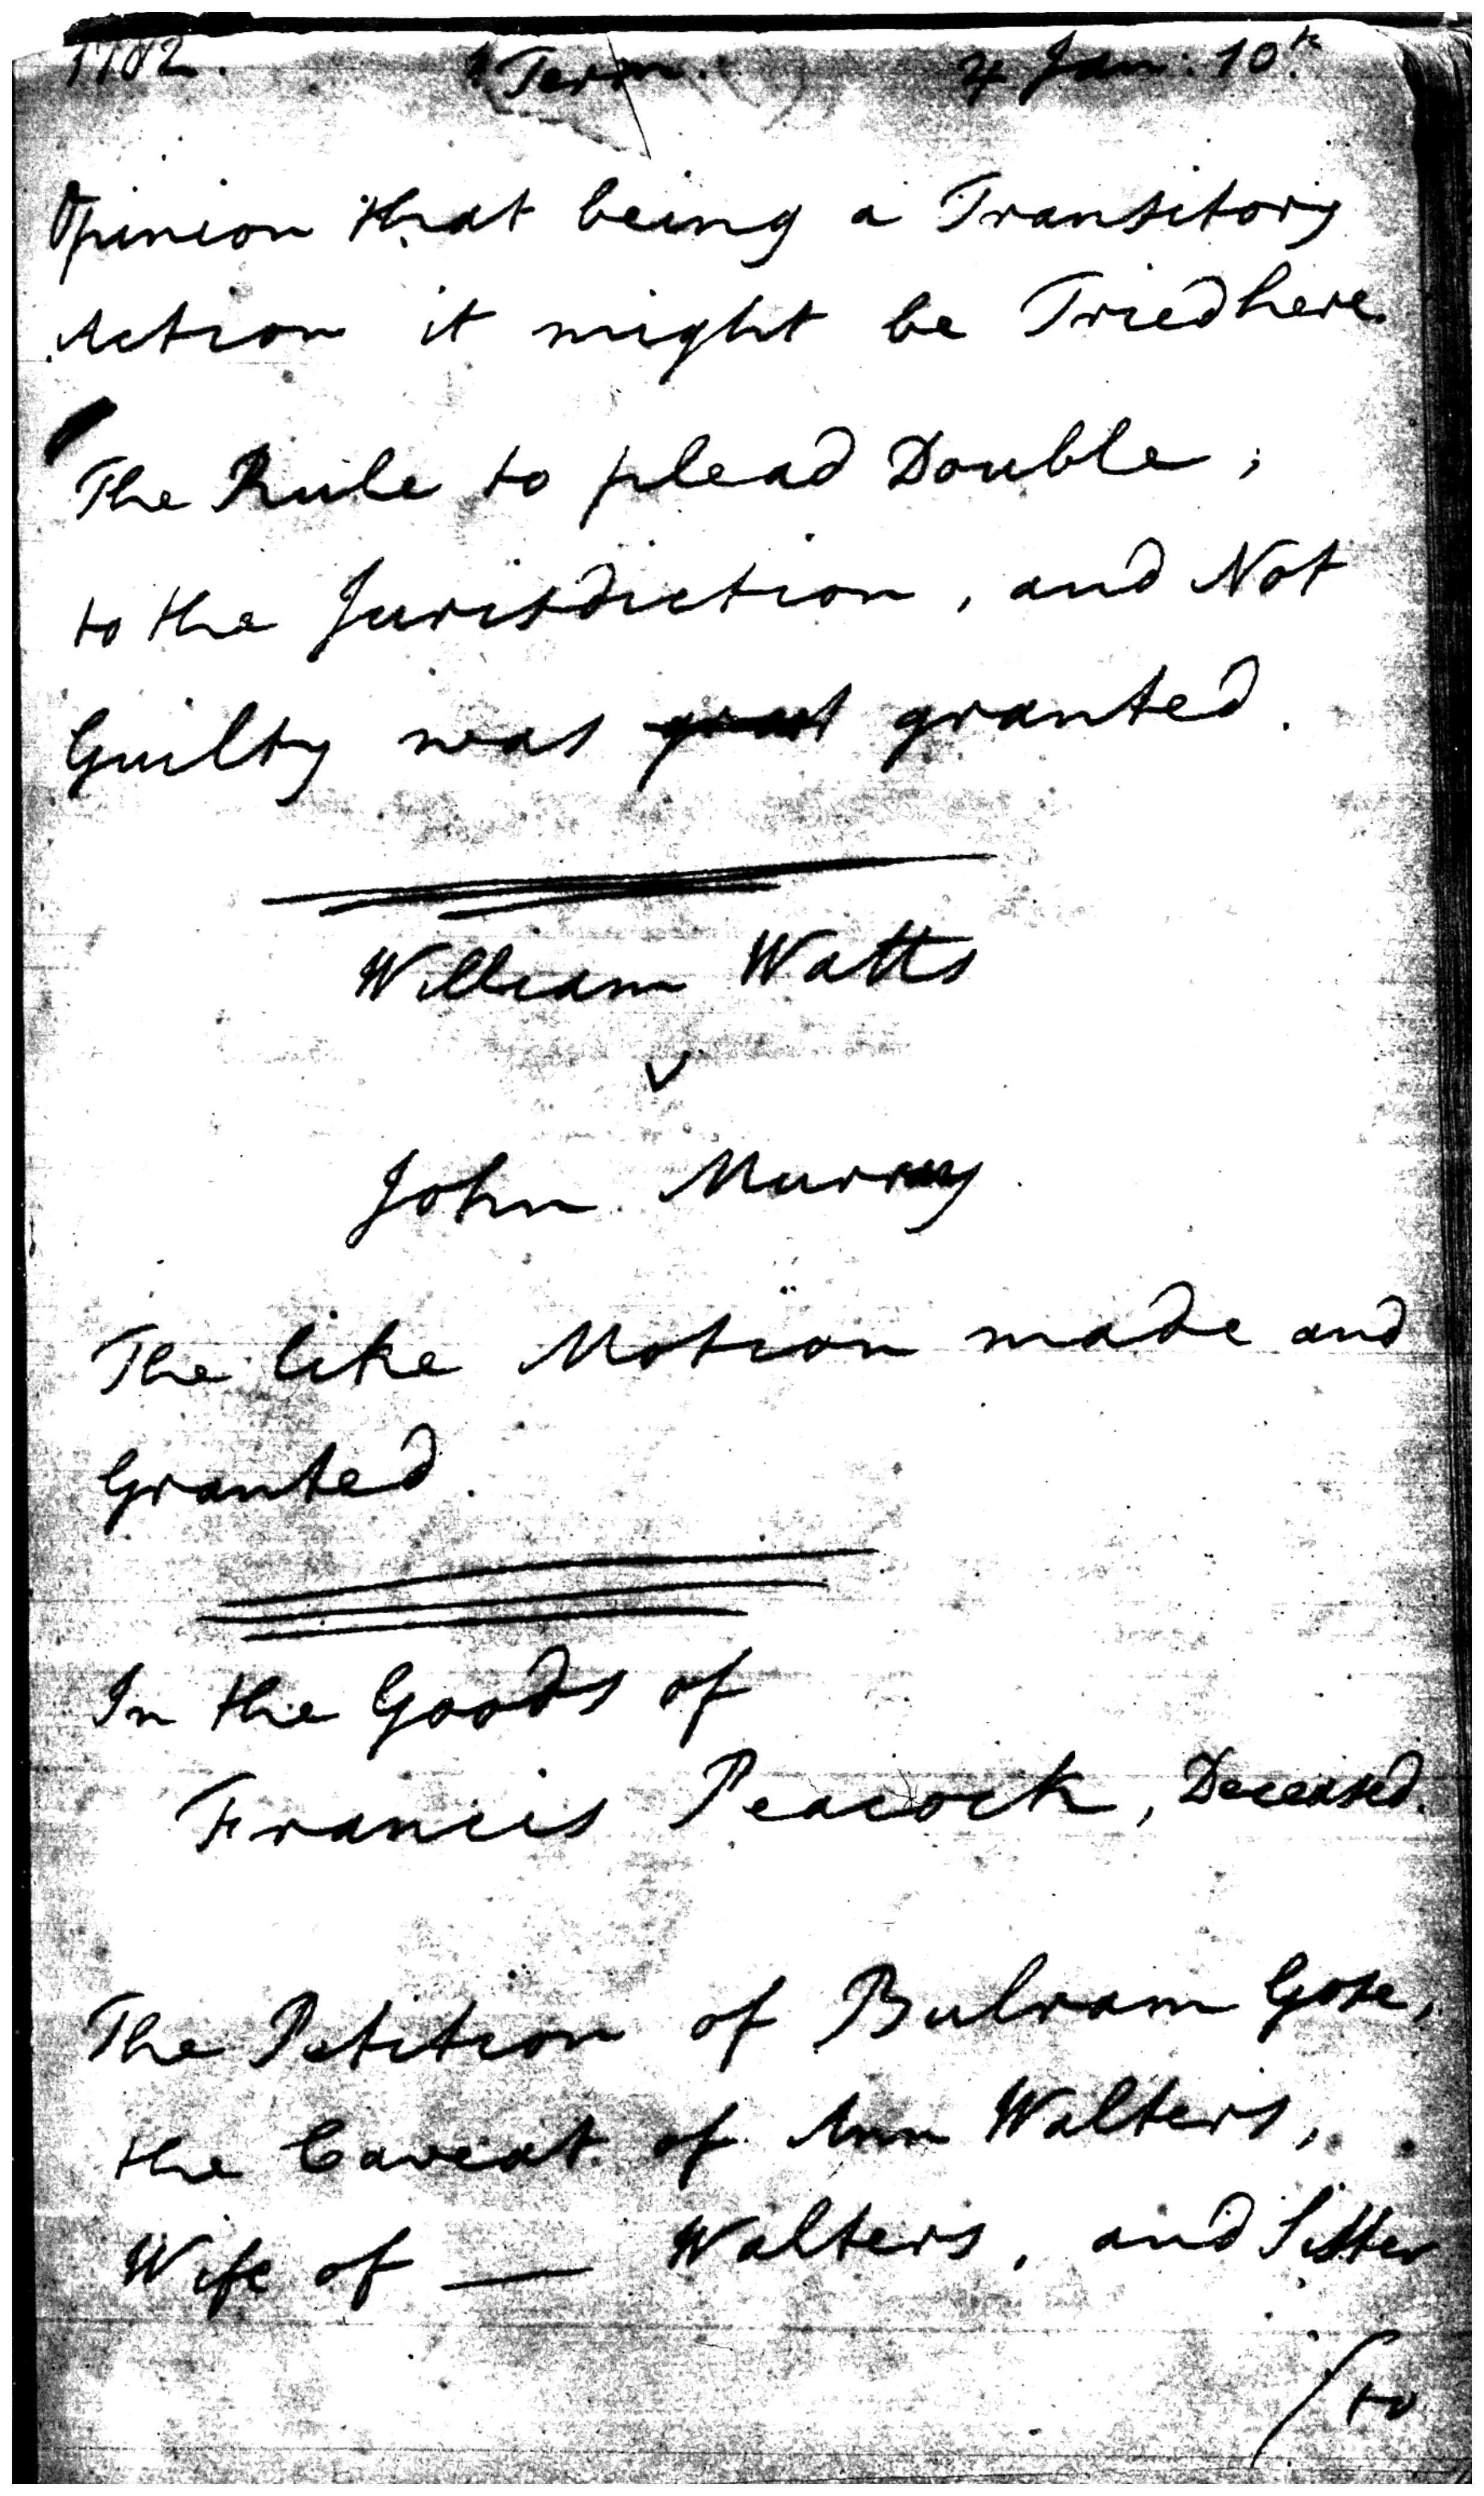 1782. 1 Term. 4 Jan: 10th
Opinion that being a Transitory
Action it might be Tried here
The Rule to plead Double;
to the Jurisdiction, and Not
Guilty was granted.
William Watts
v
John Murray
The like Motion made and
Granted.
In the Goods of
Francis Peacock, Deceased.
The Petition of Bulram Gose,
the Caveat of Ann Walters,
Wife of — Walters, and Sister
/to